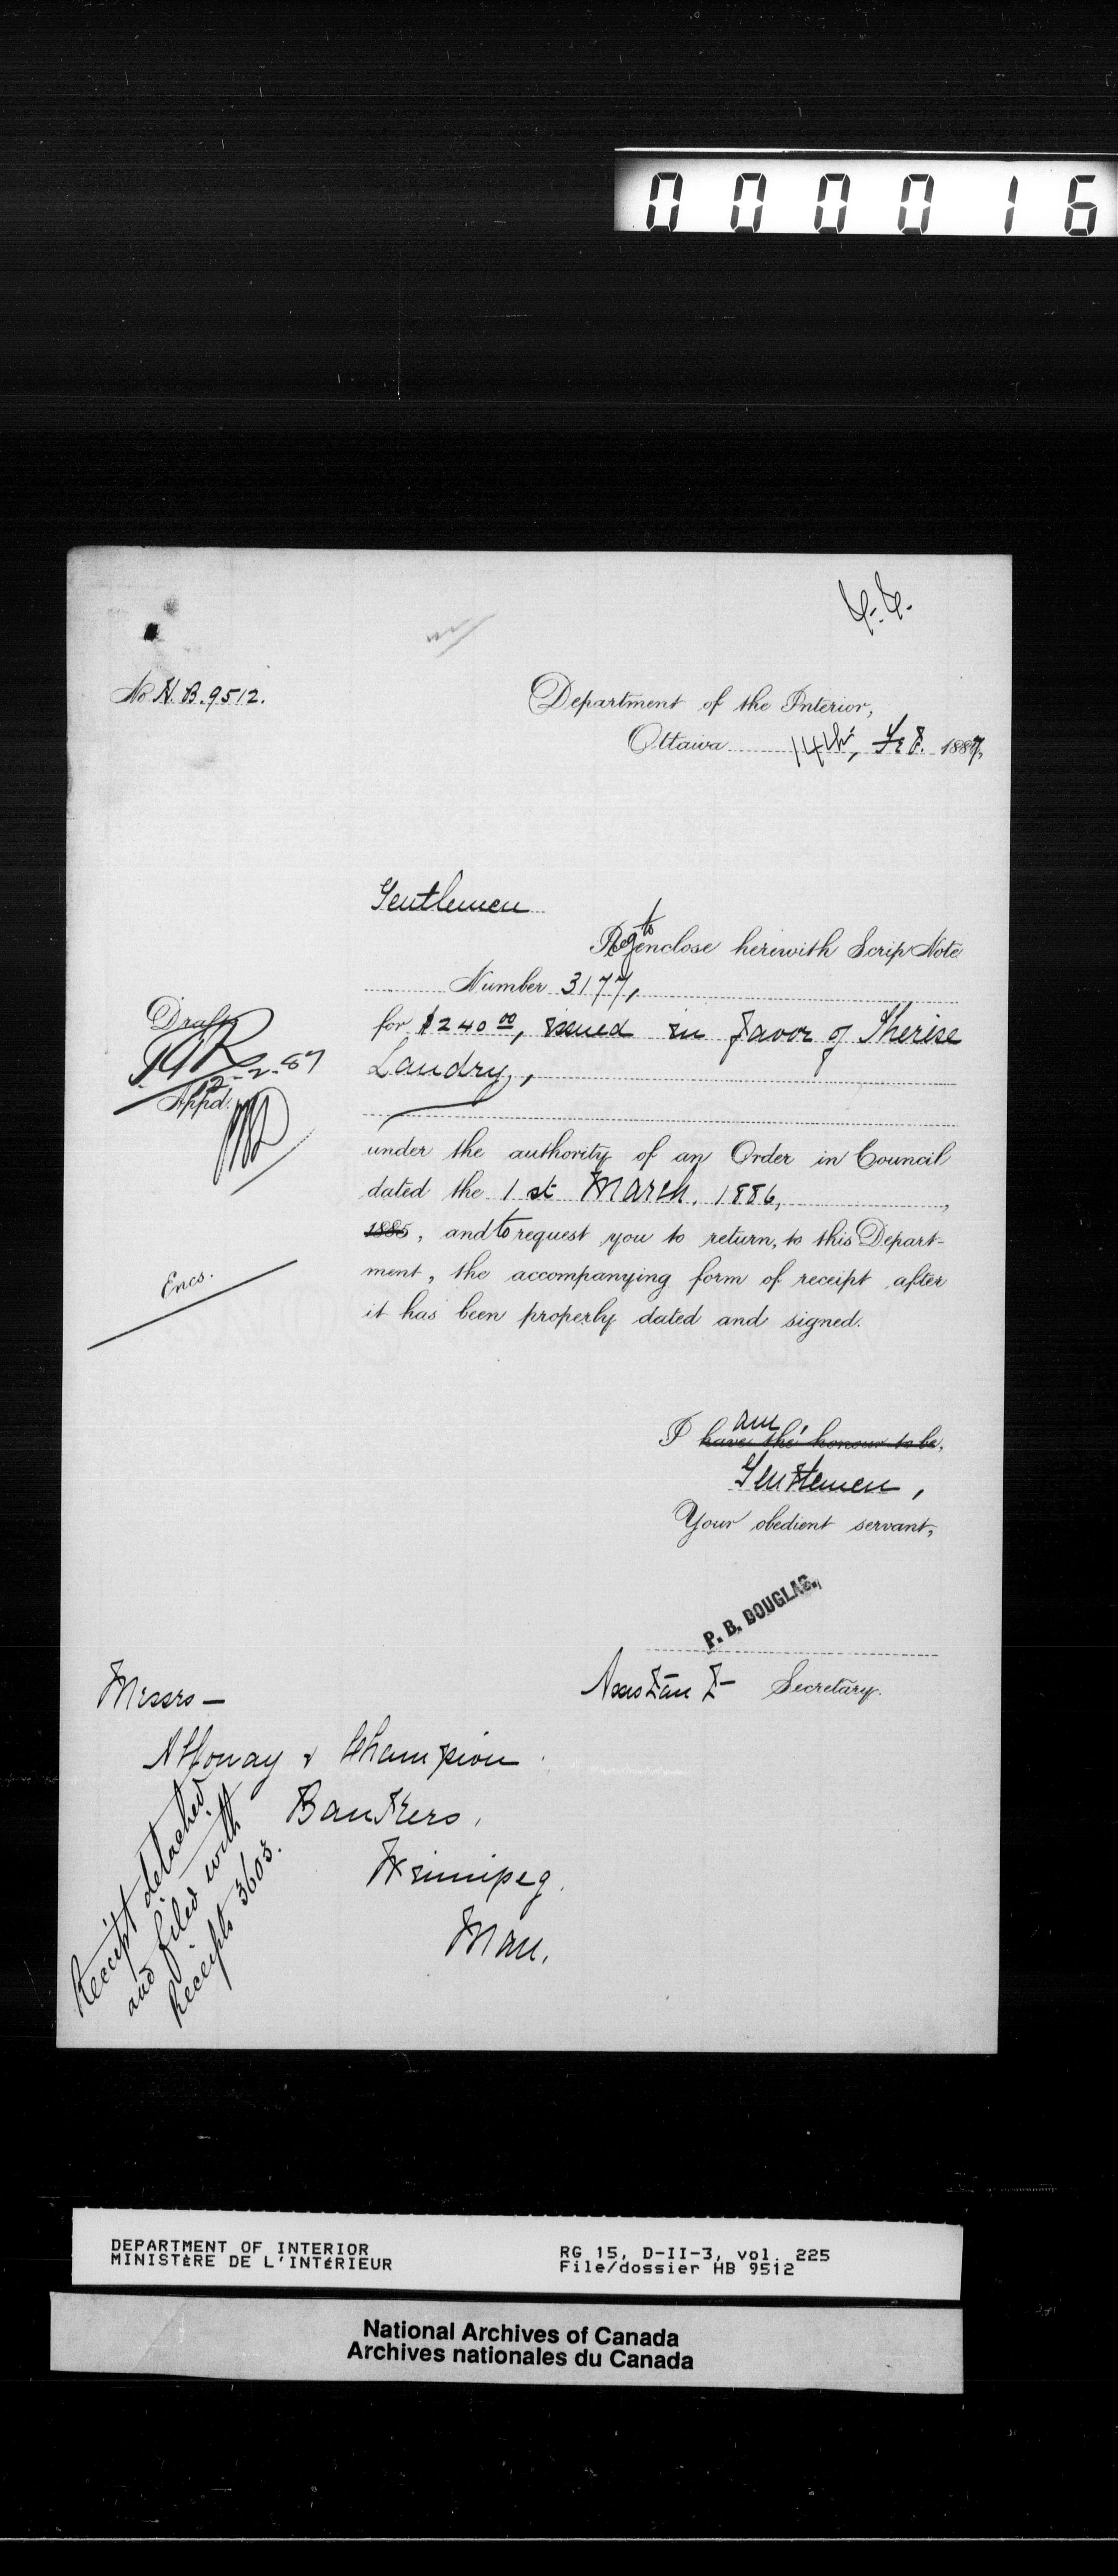 000016
C.C.
No H.B. 9512.
Department of the Interior,
Ottawa 14th, Feb. 1887,
Gentlemen
I beg to enclose herewith Scrip Note
Number 3177,
for $240 00, issued in favor of Therise
Landry,
Draft
12-2-87
Appd.
under the authority of an Order in Council
dated the 1st March, 1886,
1885, and to request you to return, to this Depart-
ment, the accompanying form of receipt after
it has been properly dated and signed.
Encs.
am
I have the honour to be,
Gentlemen,
Your obedient servant,
P. B. DOUGLAS,
Assistant Secretary.
Messrs —
Alloway & Champion
Bankers,
Winnipeg.
Man.
Receipt detached
and filed with
Receipts 3603.
DEPARTMENT OF INTERIOR
MINISTÈRE DE L'INTÉRIEUR
RG 15, D-II-3, vol. 225
File/dossier HB 9512
National Archives of Canada
Archives nationales du Canada